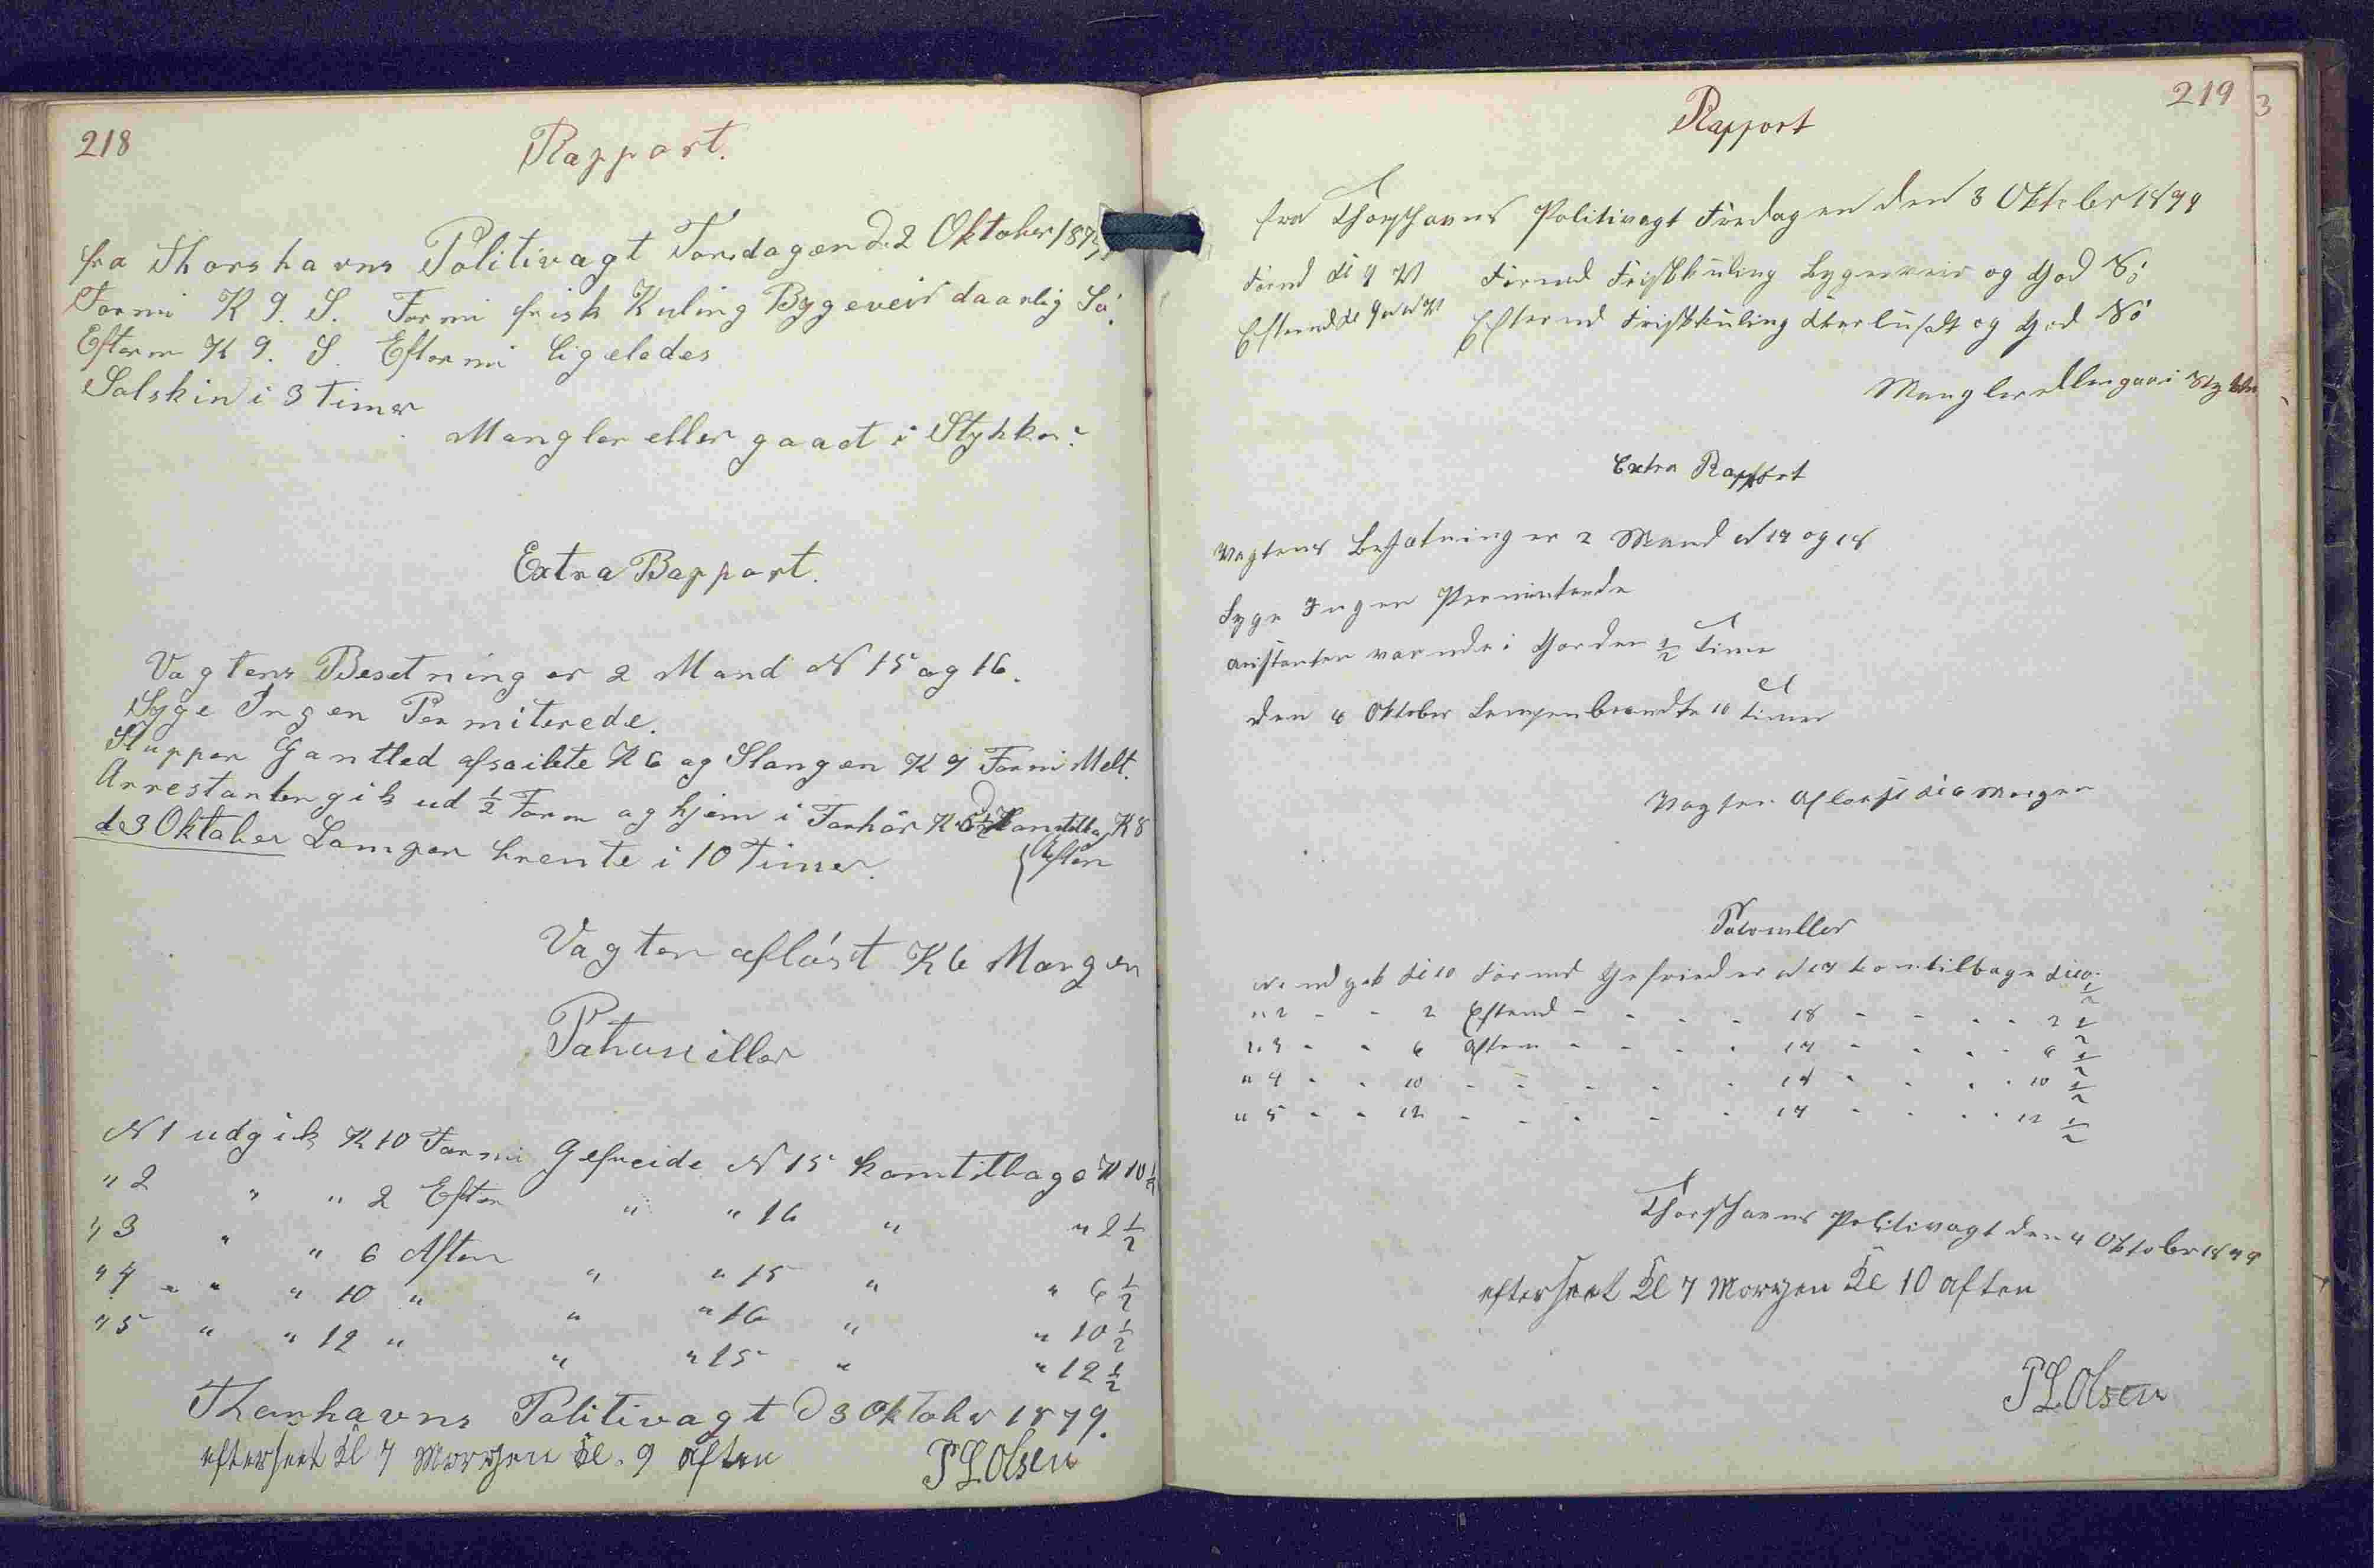 218
Rapport.
fra Thorshavns Politivagt Torsdagen d. 2 Oktober 1879
Formi K 9. S. Formi frisk Kuling Bygeveir daarlig Sö.
Efterm K 9. S. Eftermi ligeledes
Solskin i 3 Timer
Mangler eller gaaet i Stykker:
Extra Rapport.
Vagtens Besetning er 2 Mand N 15 og 16.
Syge Ingen Permiterede.
Sluppen Gantled afseilete K 6 og Slangen K 9 Formi Melt.
Arrestanten gik ud ½ Form og hjem i Forhör K tilbag K 8
Aften
de 3 Oktober Lampen brente i 10 Timer.
Vagten aflöst K 6 Morgen
Patruiller
N 1 udgik K 10 Formi Gefreide N 15 kom tilbage K 10 ½
" 2 " " 2 Efter " " 16 " " 2 ½
" 3 " " 6 Aften " " 15 " " 6 ½
" 4 " " " 10 " " " 16 " " 10 ½
" 5 " " 12 " " " 15 " " 12 ½
Thorshavns Politivagt D 3 Oktober 1879.
efterseet Kl 7 Morgen Kl. 9 aften
P L Olsen
219
Rapport
fra Thorshavns Politivagt Fredagen den 3 Oktober 1879
Formd Kl 9 V Formd Friskkuling Bygeveir og God Sö
Eftermd Kl 9 Eftermd Friskkuling og God Sö
Mangler eller gaae i Stykker
Extra Rapport
Vagtens Besætning er 2 Mand N 17 og 18
Syge Ingen Permiterede
Aristanten var ude i Gorden ½ Time
den 4 Oktober Lampen brendte 10 Timer
Vagten Afleest Kl 6 Morgen
Patrouller
N 1 udgik Kl 10 Formd Gefreider N 17 kom tilbage Kl 10 ½
" 2 - - 2 Eftermd - - - - 18 - - - - 2 ½
" 3 - - 6 Aften - - - - 17 - - - - 6 ½
" 4 - - 10 - - - - - 18 - - - - 10 ½
" 5 - - 12 - - - - - 17 - - - - 12 ½
Thorshavns Politivagt den 4 Oktober 1879
efterseet Kl 7 Morgen Kl 10 aften
P L Olsen